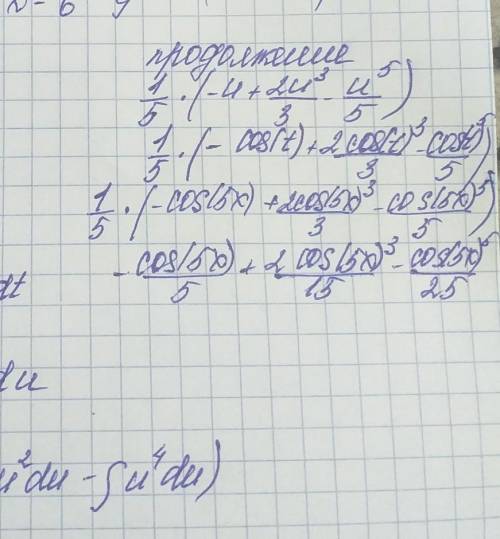 продолжение
1/5 · (-u + 2u³/3 - u⁵/5)
1/5 · (- cos(t) + 2cos(t)³/3 - cos(t)⁵/5)
1/5 · (-cos(5x) + 2cos(5x)³/3 - cos(5x)⁵/5)
- cos(5x)/5 + 2 cos(5x)³/15 - cos(5x)⁵/25
dt
du
u²du - ∫u⁴du)